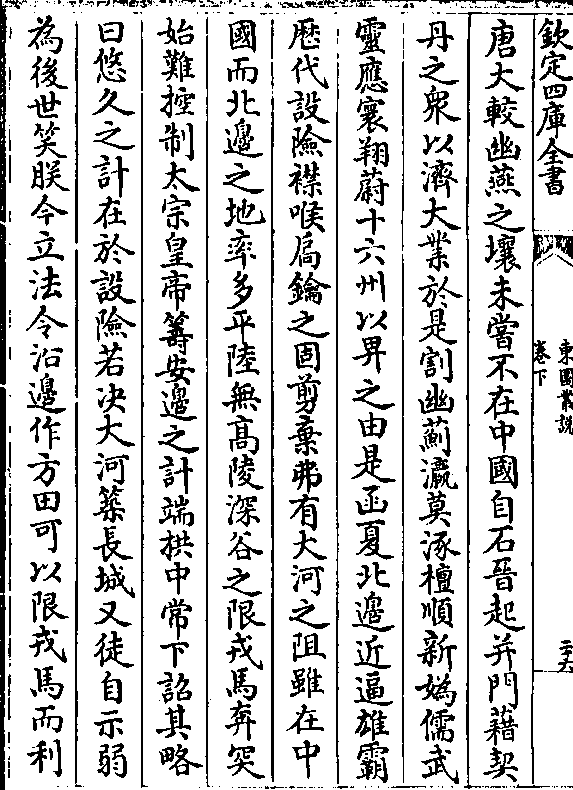 欽定四庫全書
東園叢說
卷下
二十六
唐大較幽燕之壤未嘗不在中國自石晉起并門藉契
丹之衆以濟大業於是割幽薊瀛莫涿檀順新媯儒武
靈應寰朔蔚十六州以畀之由是函夏北邊近逼雄霸
歷代設險襟喉扃鑰之固剪棄弗有大河之阻雖在中
國而北邊之地率多平陸無高陵深谷之限戎馬奔突
始難控制太宗皇帝籌安邊之計端拱中常下詔其略
曰悠久之計在於設險若決大河築長城又徒自示弱
為後世笑朕今立法令沿邊作方田可以限戎馬而利